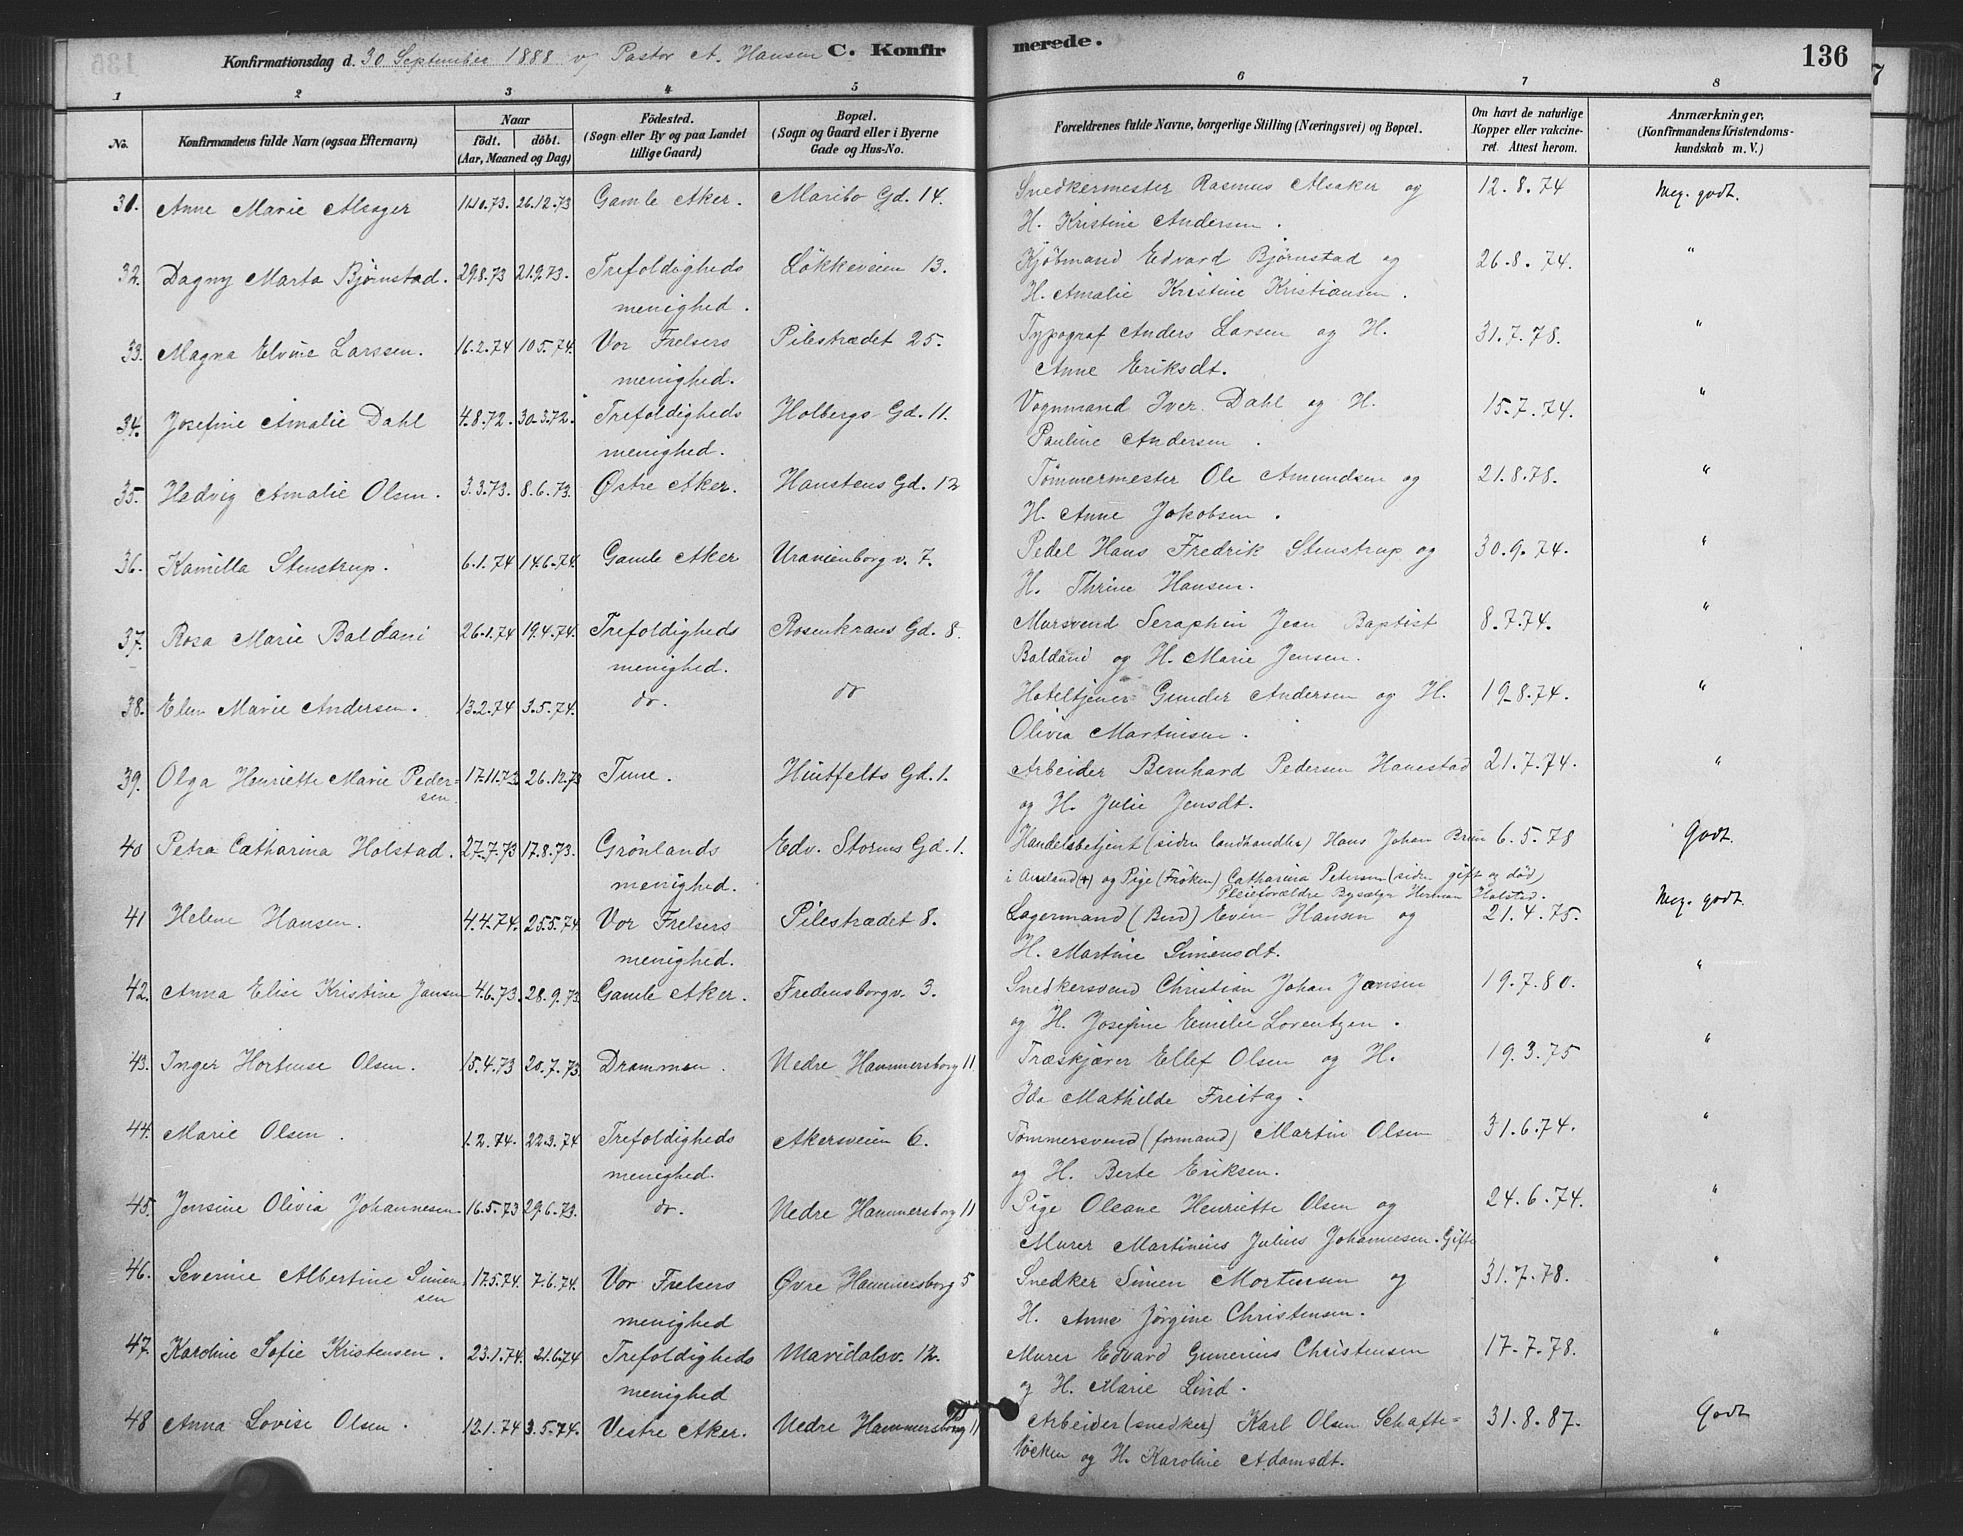 Konfirmationsdag d. 30 September 1888 v/ Pastor A. Hansen C. Konfirmerede. 136
1 2 3 4 5 6 7 8
No. Konfirmandens fulde Navn (ogsaa Efternavn) Naar født. døbt. (Aar, Maaned og Dag) Fødested. (Sogn eller By og paa Landet tillige Gaard) Bopæl. (Sogn og Gaard eller i Byerne Gade og Hus-No. Forældrenes fulde Navne, borgerlige Stilling (Næringsvei) og Bopæl. Om havt de naturlige Kopper eller vakcineret. Attest herom. Anmærkninger, (Konfirmandens Kristendomskundskab m. V.)
31. Anne Marie Alsager 26.12.73 Gamle Aker. Maribo Gd. 14. Snedkermester Rasmus Alsaker og 12.8.74 Meg. godt.
H. Kristine Andersen.
32. Dagny Marta Bjørnstad. 29.8.73 21.9.73. Trefoldigheds Løkkeveien 13. Kjøbmand Edvard Bjørnstad og 26.8.74. "
menighed. H. Amalie Kristine Kristiansen.
33. Magna Elvine Larssen. 16.2.74 10.5.74. Vor Frelsers Pilestrædet 25. Typograf Anders Larsen og H. 31.7.78. "
menighed. Anne Eriksdt.
34. Josefine Amalie Dahl 4.8.72. 30.3.72. Trefoldigheds Holbergs Gd. 11. Vognmand Iver Dahl og H. 15.7.74. "
menighed. Pauline Andersen.
35. Hedvig Amalie Olsen. 3.3.73. 8.6.73. Østre Aker. Hanstens Gd. 12 Tømmermester Ole Amundsen og 21.8.78. "
H. Anne Jakobsen.
36. Kamilla Stenstrup. 6.1.74 14.6.74. Gamle Aker Uranienborg v. 7. Pedel Hans Fredrik Stenstrup og 30.9.74. "
H. Thrine Hansen.
37. Rosa Marie Baldani 26.1.74 19.4.74. Trefoldigheds Rosenkrans Gd. 8. Mursvend Seraphin Jean Baptist 8.7.74. "
menighed. Baldand og H. Marie Jensen.
38. Elen Marie Andersen. 13.2.74 3.5.74. do. do Hoteltjener Gunder Andersen og H. 19.8.74. "
Olivia Martinsen.
39. Olga Henriette Marie Pedersen. 17.11.73 26.12.73 Tune. Huitfelts Gd. 1. Arbeider Bernhard Pedersen Hanestad 21.7.74. "
og H. Julie Jensdt.
40 Petra Catharina Holstad. 27.7.73 17.8.73. Grönlands Edv. Storms Gd. 1. Handelsbetjent (siden landhandler) Hans Johan Brun 6.5.78 Godt.
menighed. i Aurland (+) og Pige (Frøken) Catharina Petersen (siden gift og død)
Pleieforældre Bysælger Herman Holstad.
41 Helene Hansen. 4.4.74. 25.5.74 Vor Frelsers Pilestrædet 8. Lagermand (Bud) Even Hansen og 21.4.75. Meg. godt.
menighed. H. Martine Simensdt.
42. Anna Elise Kristine Jansen 4.6.73. 28.9.73. Gamle Aker. Fredensborgv. 3. Snedkersvend Christian Johan Jansen 19.7.80. "
og H. Josefine Emilie Lorentzen.
43. Inger Hortense Olsen. 15.4.73 20.7.73. Drammen. Nedre Hammersborg 11 Træskjærer Ellef Olsen og H. 19.3.75 "
Ida Mathilde Freitag.
44. Marie Olsen. 1.2.74. 22.3.74 Trefoldigheds Akersveien 6. Tømmersvend (formand) Martin Olsen 31.6.74. "
menighed. og H. Berte Eriksen.
45. Jensine Olivia Johannesen. 16.5.73 29.6.73. do. Nedre Hammersborg 11 Pige Oleane Henriette Olsen og 24.6.74. "
Murer Martinius Julius Johannesen. Gifte
46. Severine Albertine Simensen 17.5.74. 7.6.74. Vor Frelsers Øvre Hammersborg 5 Snedker Simen Mortensen og 31.7.78. "
menighed H. Anne Jørgine Christensen.
47. Karoline Sofie Kristensen. 23.1.74. 21.6.74 Trefoldigheds Maridalsv. 12. Murer Edvard Gunerius Christensen 17.7.78. "
menighed og H. Marie Lind.
48 Anna Lovise Olsen. 12.1.74 3.5.74. Vestre Aker. Nedre Hammersborg 11 Arbeider (snedker) Karl Olsen Schafteløcken 31.8.87. Godt
og H. Karoline Adamsdt.